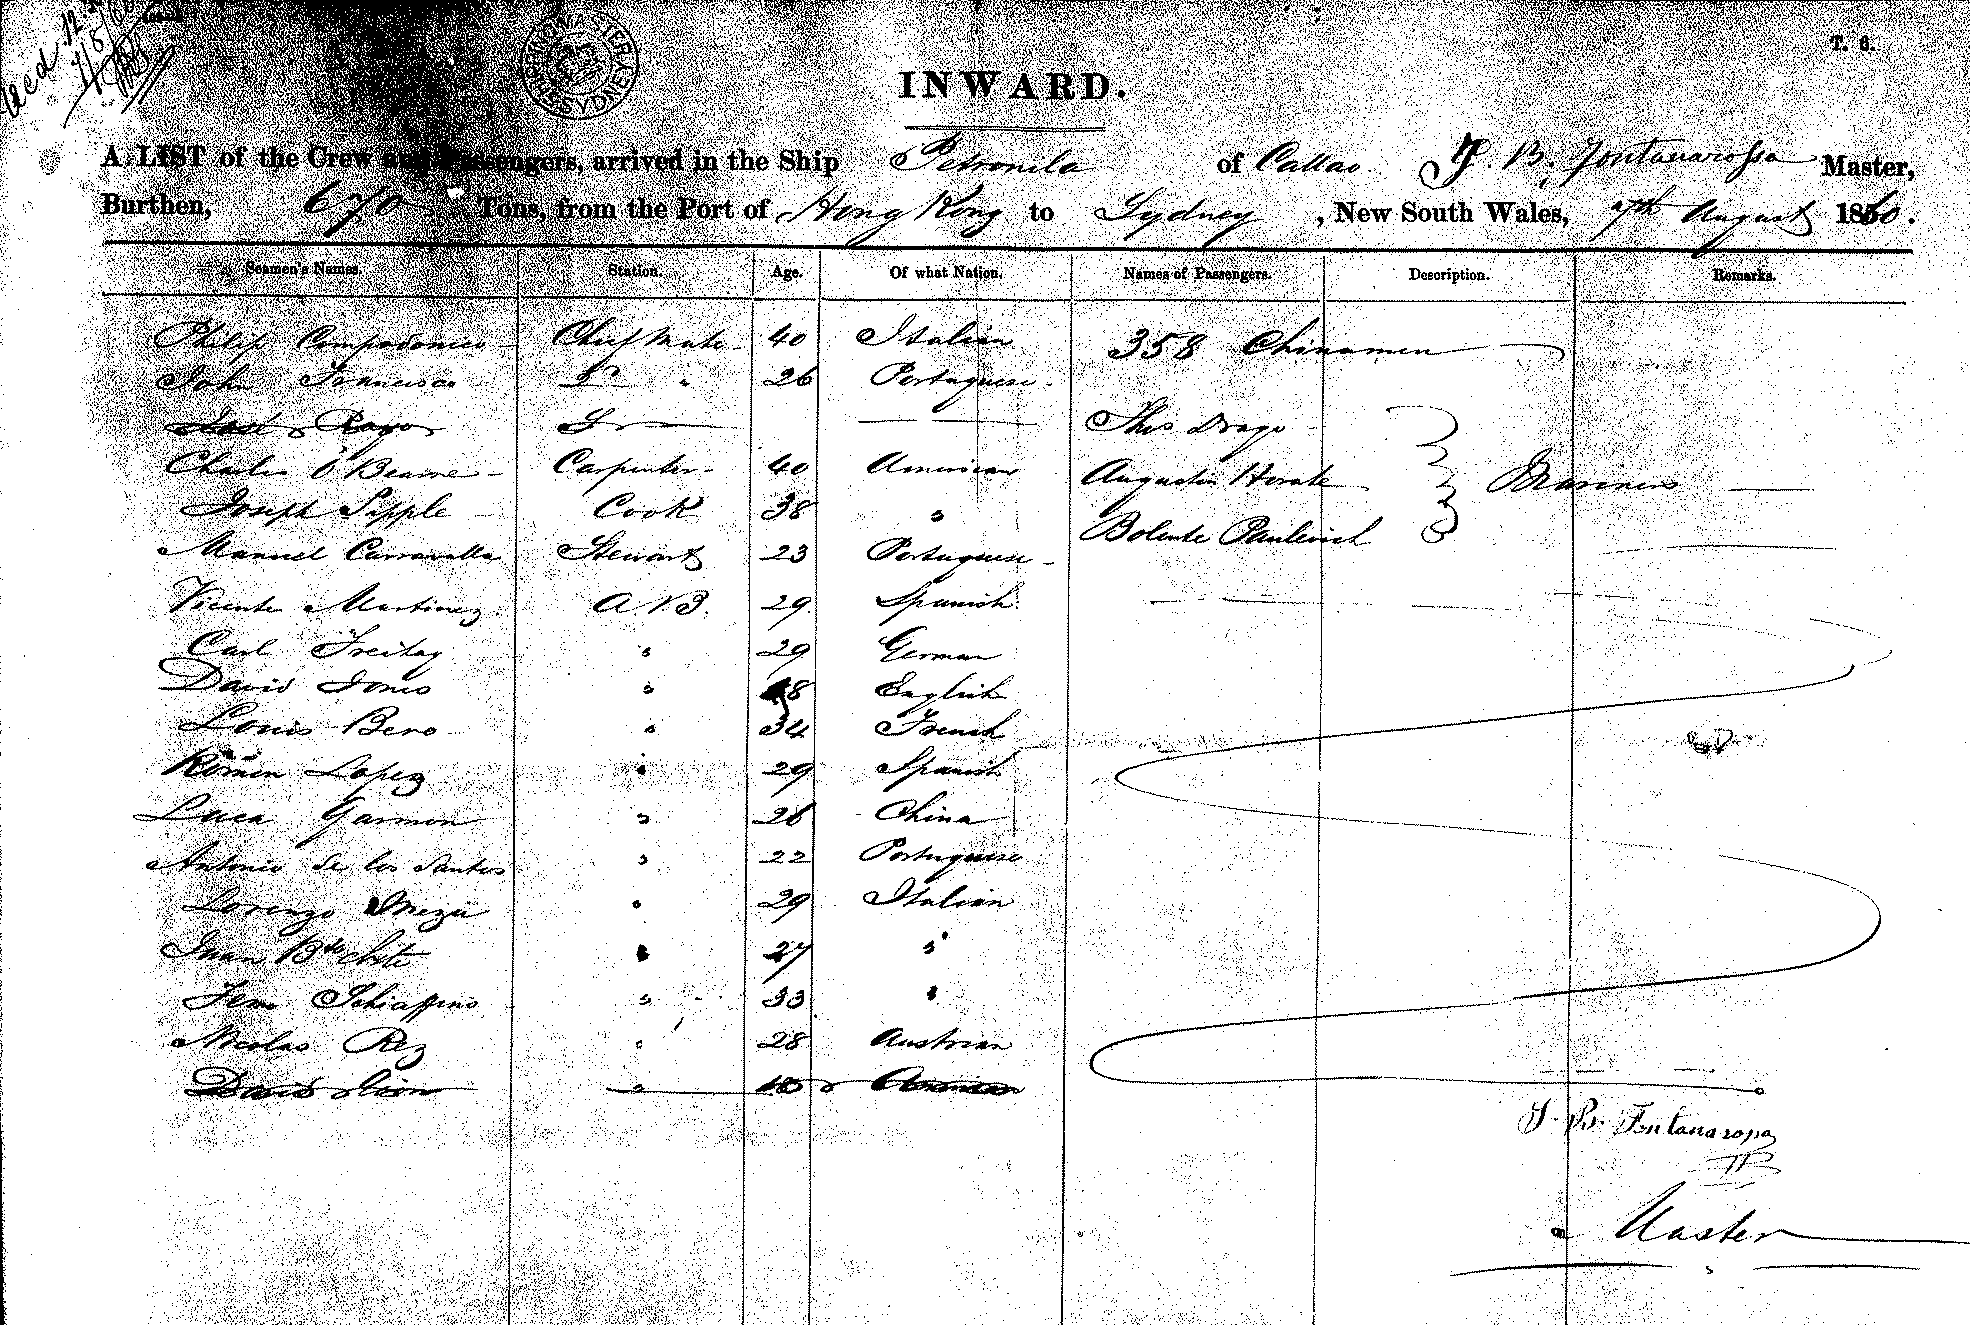 T. 6.
INWARD.
A LIST of the Crew and Passengers, arrived in the Ship Petronila of Callao J. B. Fontanarossa Master,
Burthen, 670 Tons, from the Port of Hong Kong to Sydney, New South Wales, 7th August 1860.
Seamen's Names. Station. Age. Of what Nation. Names of Passengers. Description. Remarks.
Philip Campodonico Chief Mate 40 Italian 358 Chinamen
John Francisco Do " 26 Portuguese
Drago
Charles O'Bearne Carpenter 40 American Augustin Mariners
Joseph Sipple Cook 38 "
Bolente Paulevich
Manuel Carravalla Stewart 23 Portuguese
Vicente Martinez A.B. 29 Spanish
Carl Freitag " 29 German
David Jones " 48 English
Louis Bero " 34 French
Romen Lopez " 29 Spanish
Luca Garmon " 26 China
Antonio de los Santos " 22 Portuguese
Lorenzo " 29 Italian
Juan Bte " 27 "
Schiaffino " 33 "
Nicolas Rez " 28 Austrian
David
J. B. Fontanarossa
Master